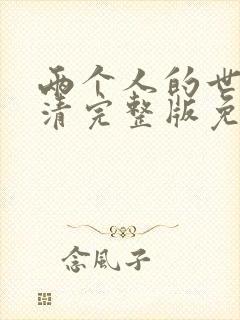 两个人的世
清完整版免
念风子